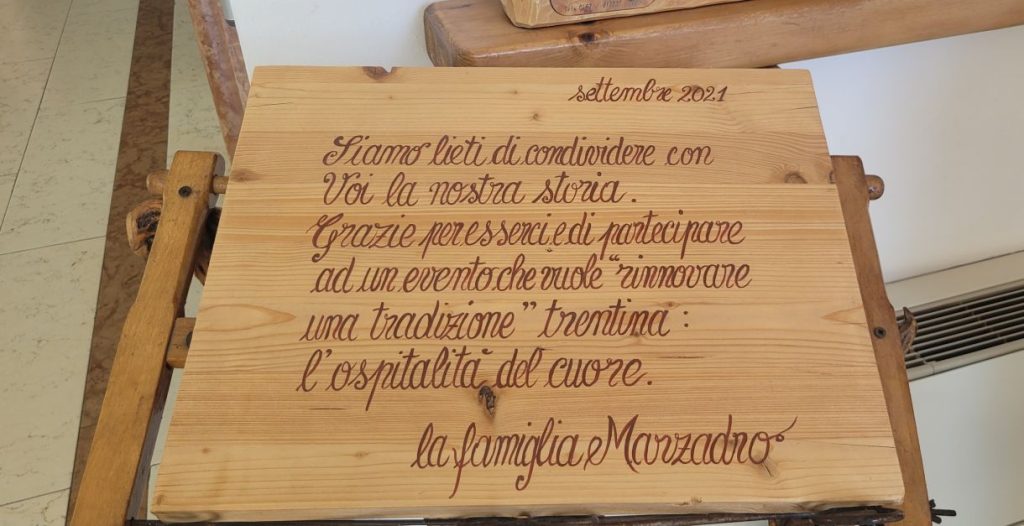 settembre 2021
Siamo lieti di condividere con
Voi la nostra storia.
Grazie per esserci e di partecipare
ad un evento che vuole "rinnovare
una tradizione" trentina:
l'ospitalità del cuore.
la famiglia Marzadro